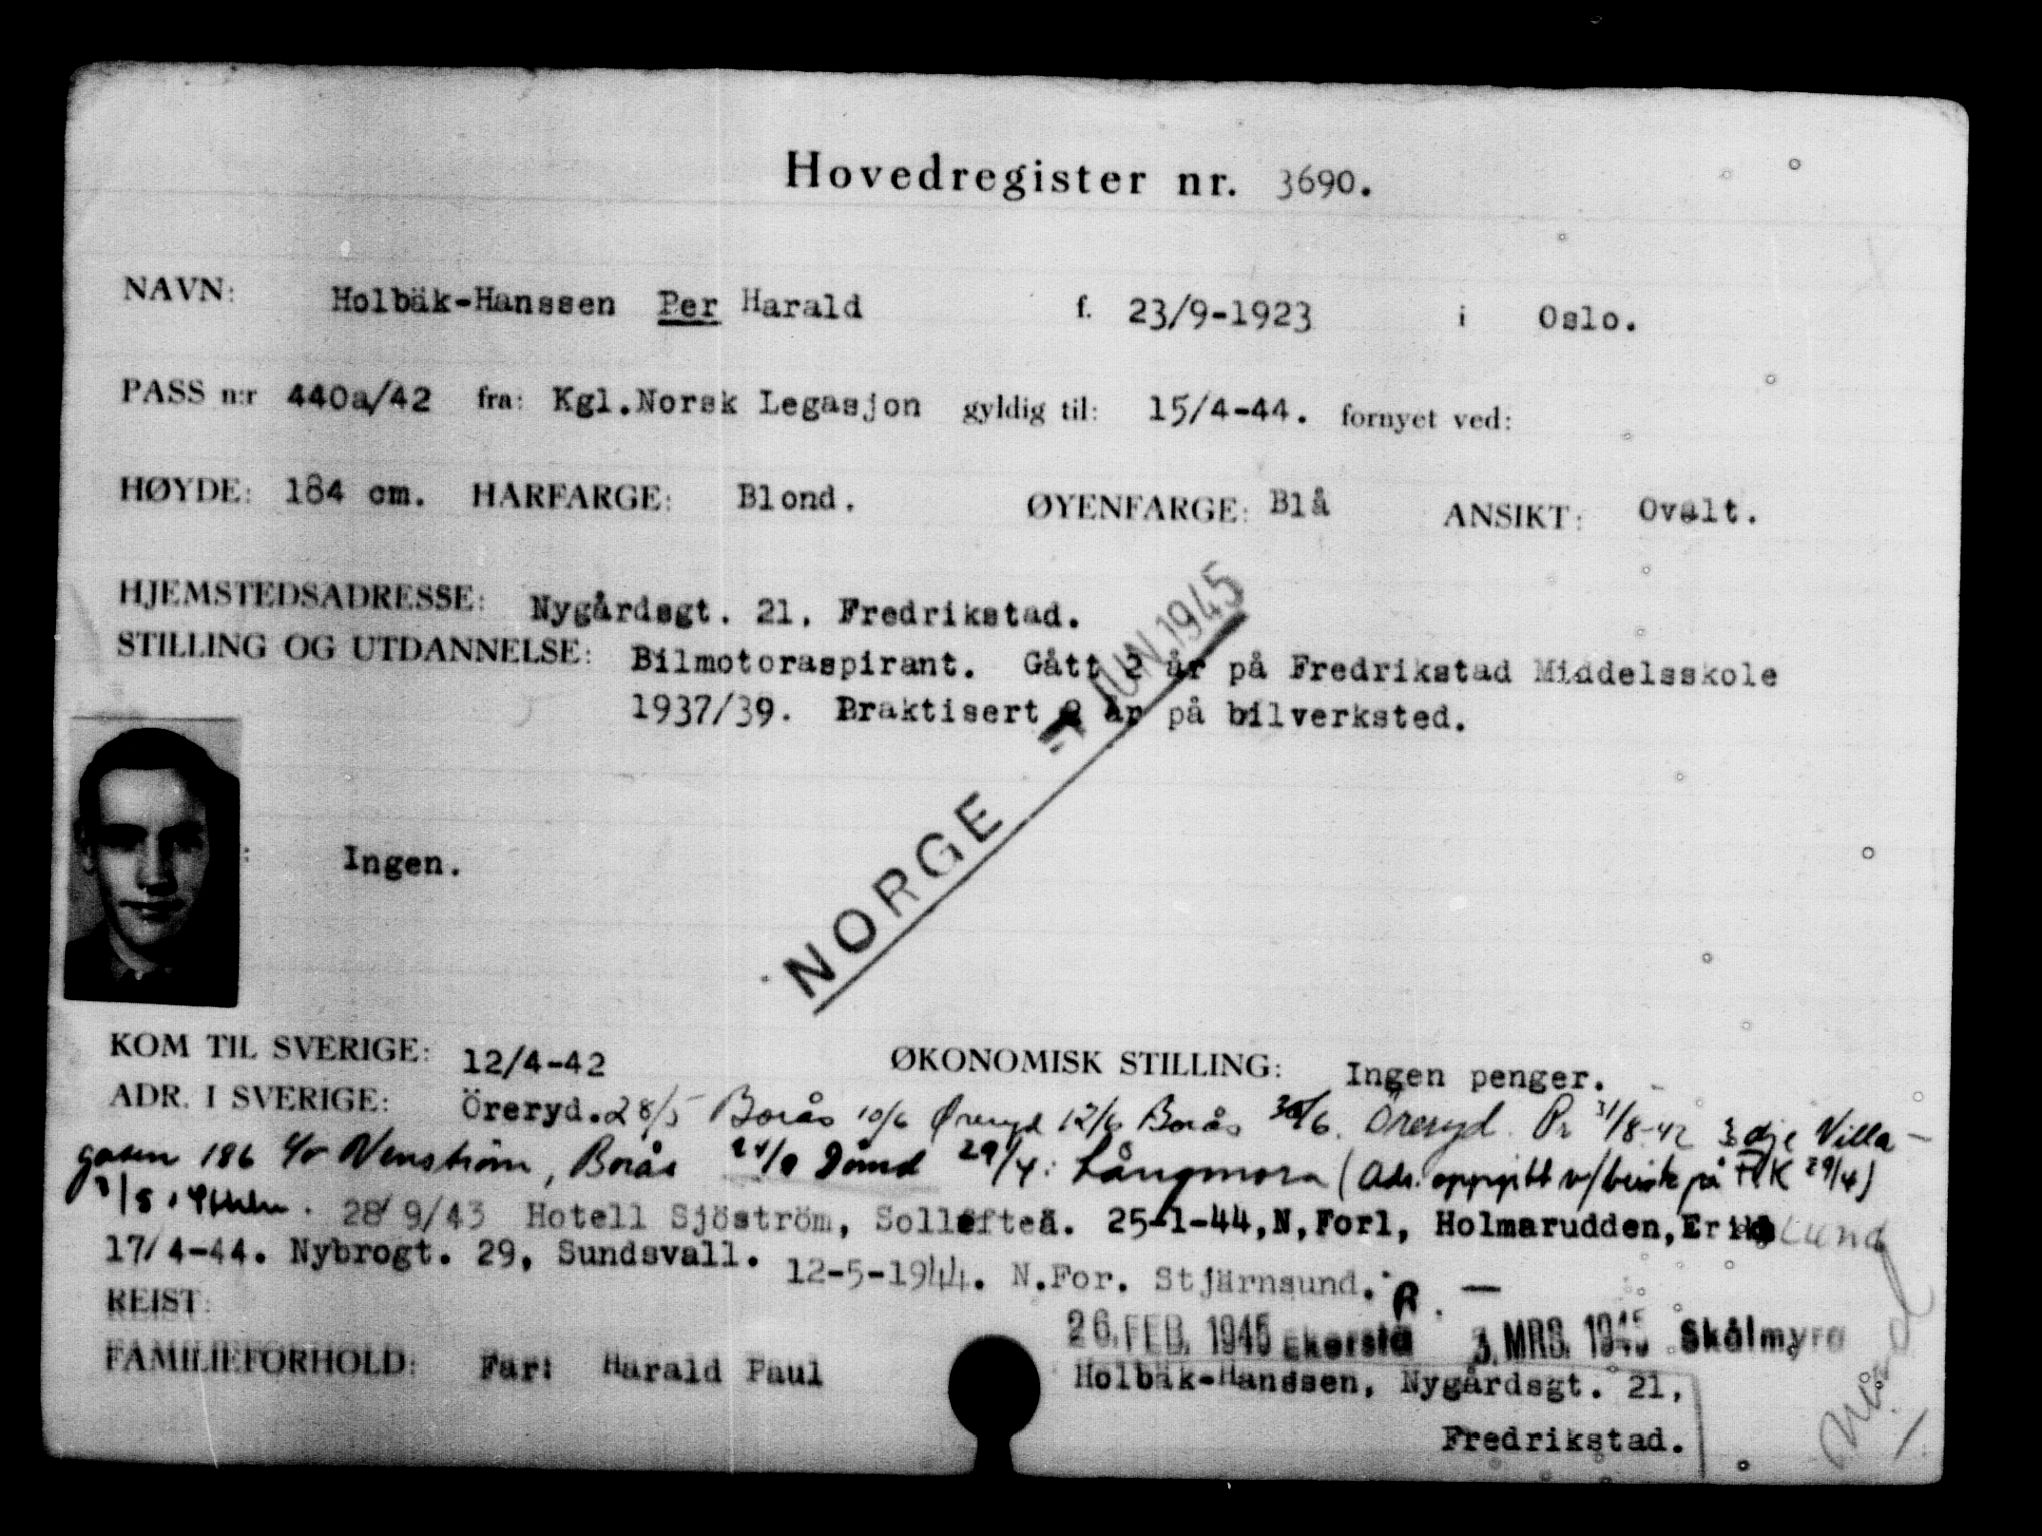 Hovedregister nr. 3690.
NAVN: Holbäk-Hanssen Per Harald f. 23/9-1923 i Oslo.
PASS n:r 440a/42 fra: Kgl.Norsk Legasjon gyldig til: 15/4-44. fornyet ved:
HØYDE: 184 cm. HARFARGE: Blond. ØYENFARGE: Blå ANSIKT: Ovalt.
HJEMSTEDSADRESSE: Nygårdsgt. 21, Fredrikstad.
STILLING OG UTDANNELSE: Bilmotoraspirant. Gått 2 år på Fredrikstad Middelsskole
1937/39. Praktisert 2 år på bilverksted.
NORGE JUN. 1945
: Ingen.
KOM TIL SVERIGE: 12/4-42 ØKONOMISK STILLING: Ingen penger.
ADR. I SVERIGE: Öreryd. 28/5 Borås 10/6 Øreryd 12/6 Borås 30/6. Öreryd. Pr 31/8-42 3dje Villa-
gatan 186 c/o Wenström, Borås 29/4: Långmora (Adr. oppgitt v/besøk på 29/4)
28/9/43 Hotell Sjöström, Sollefteå. 25-1-44, N, Forl, Holmarudden, Eriks Lund
17/4-44. Nybrogt. 29, Sundsvall. 12-5-1944. N.For. Stjärnsund. R. —
REIST: 26. FEB. 1945 Ekorsta 3. MRS. 1945 Skålmyra
FAMILIEFORHOLD: Far: Harald Paul Holbäk-Hanssen, Nygårdsgt. 21,
Fredrikstad.